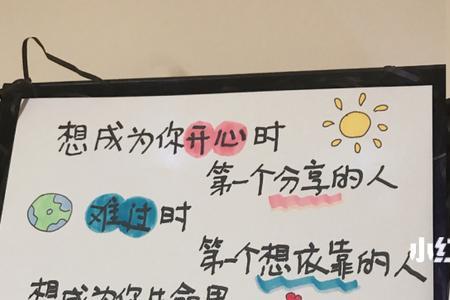 想成为你开心时
第一个分享的人
难过时
第一个想依靠的人
小红
想成为你生命里